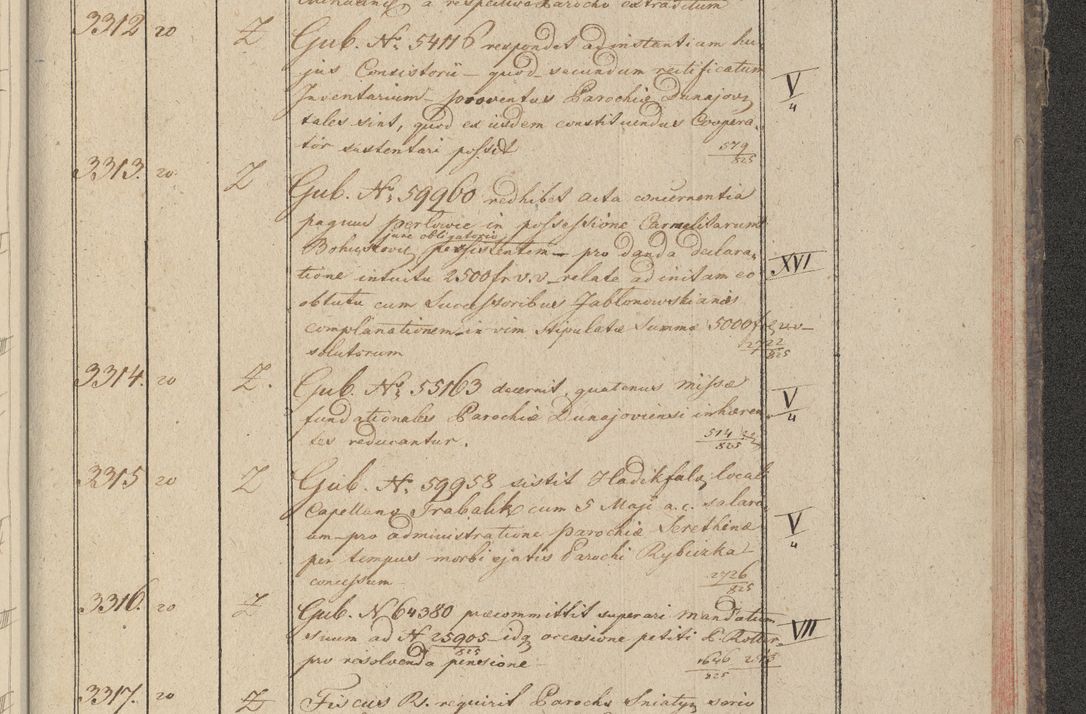 a respective Parocho extraditum
3312 20 Z Gub. Nr. 54116 respondet ad instantiam hu-
jus Consistorii – quod secundum rectificatum
Inventarium – proventus Parochiæ Dunajov
tales sint, quod ex iisdem constituendus Coopera-
tor sustentari possit
V/4
579/825
3313. 20. Z Gub. Nr. 59960 redhibet acta concernentia
pagum Perlowce in possessione Carmelitarum
jure obligatorio
Bohustovic persistentem – pro danda declara-
tione intuitu 2500 fr v.v. relate ad initam eo
XVI
obtutu cum Successoribus Jablonowskianis
complanationem in vim stipulatæ Summæ 5000 fr v.v.
solutorum
2722/825
3314. 20 Z. Gub. Nr. 55163 decernit, quatenus missæ
fundationales Parochiæ Dunajoviensi inhæren-
tes reducantur.
V/4
514/825
3315 20 Z Gub. Nr. 59958 sistit Hadikfalv. local
Capellano Trabalik cum 5 Maji a.c. salari-
um pro administratione parochiæ Serethinæ
per tempus morbi ejatis Parochi Rybiczka
concessum
V/4
2726/825
3316. 20 Z Gub. N 64380 præcommittit superari mandatum
suum ad N 25905/825 idq occasione petiti
pro resolvenda pensione
VII
1646/825
3317. 20 Z Fiscus R. requirit Parocho Sniatyn